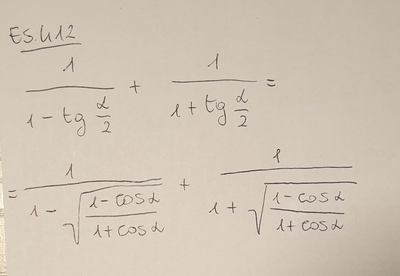 ES.412
1/(1 - tg α/2) + 1/(1 + tg α/2) =
= 1/(1 - √((1 - cos α)/(1 + cos α))) + 1/(1 + √((1 - cos α)/(1 + cos α)))